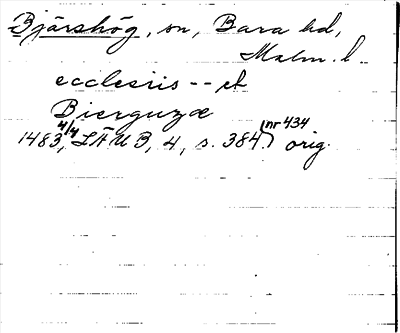 Bjärshög, sn, Bara hd,
Malm. l
ecclesiis -- et
Bierguzæ
1483 4/4, LÄUB, 4, s. 384. (nr 434) orig.